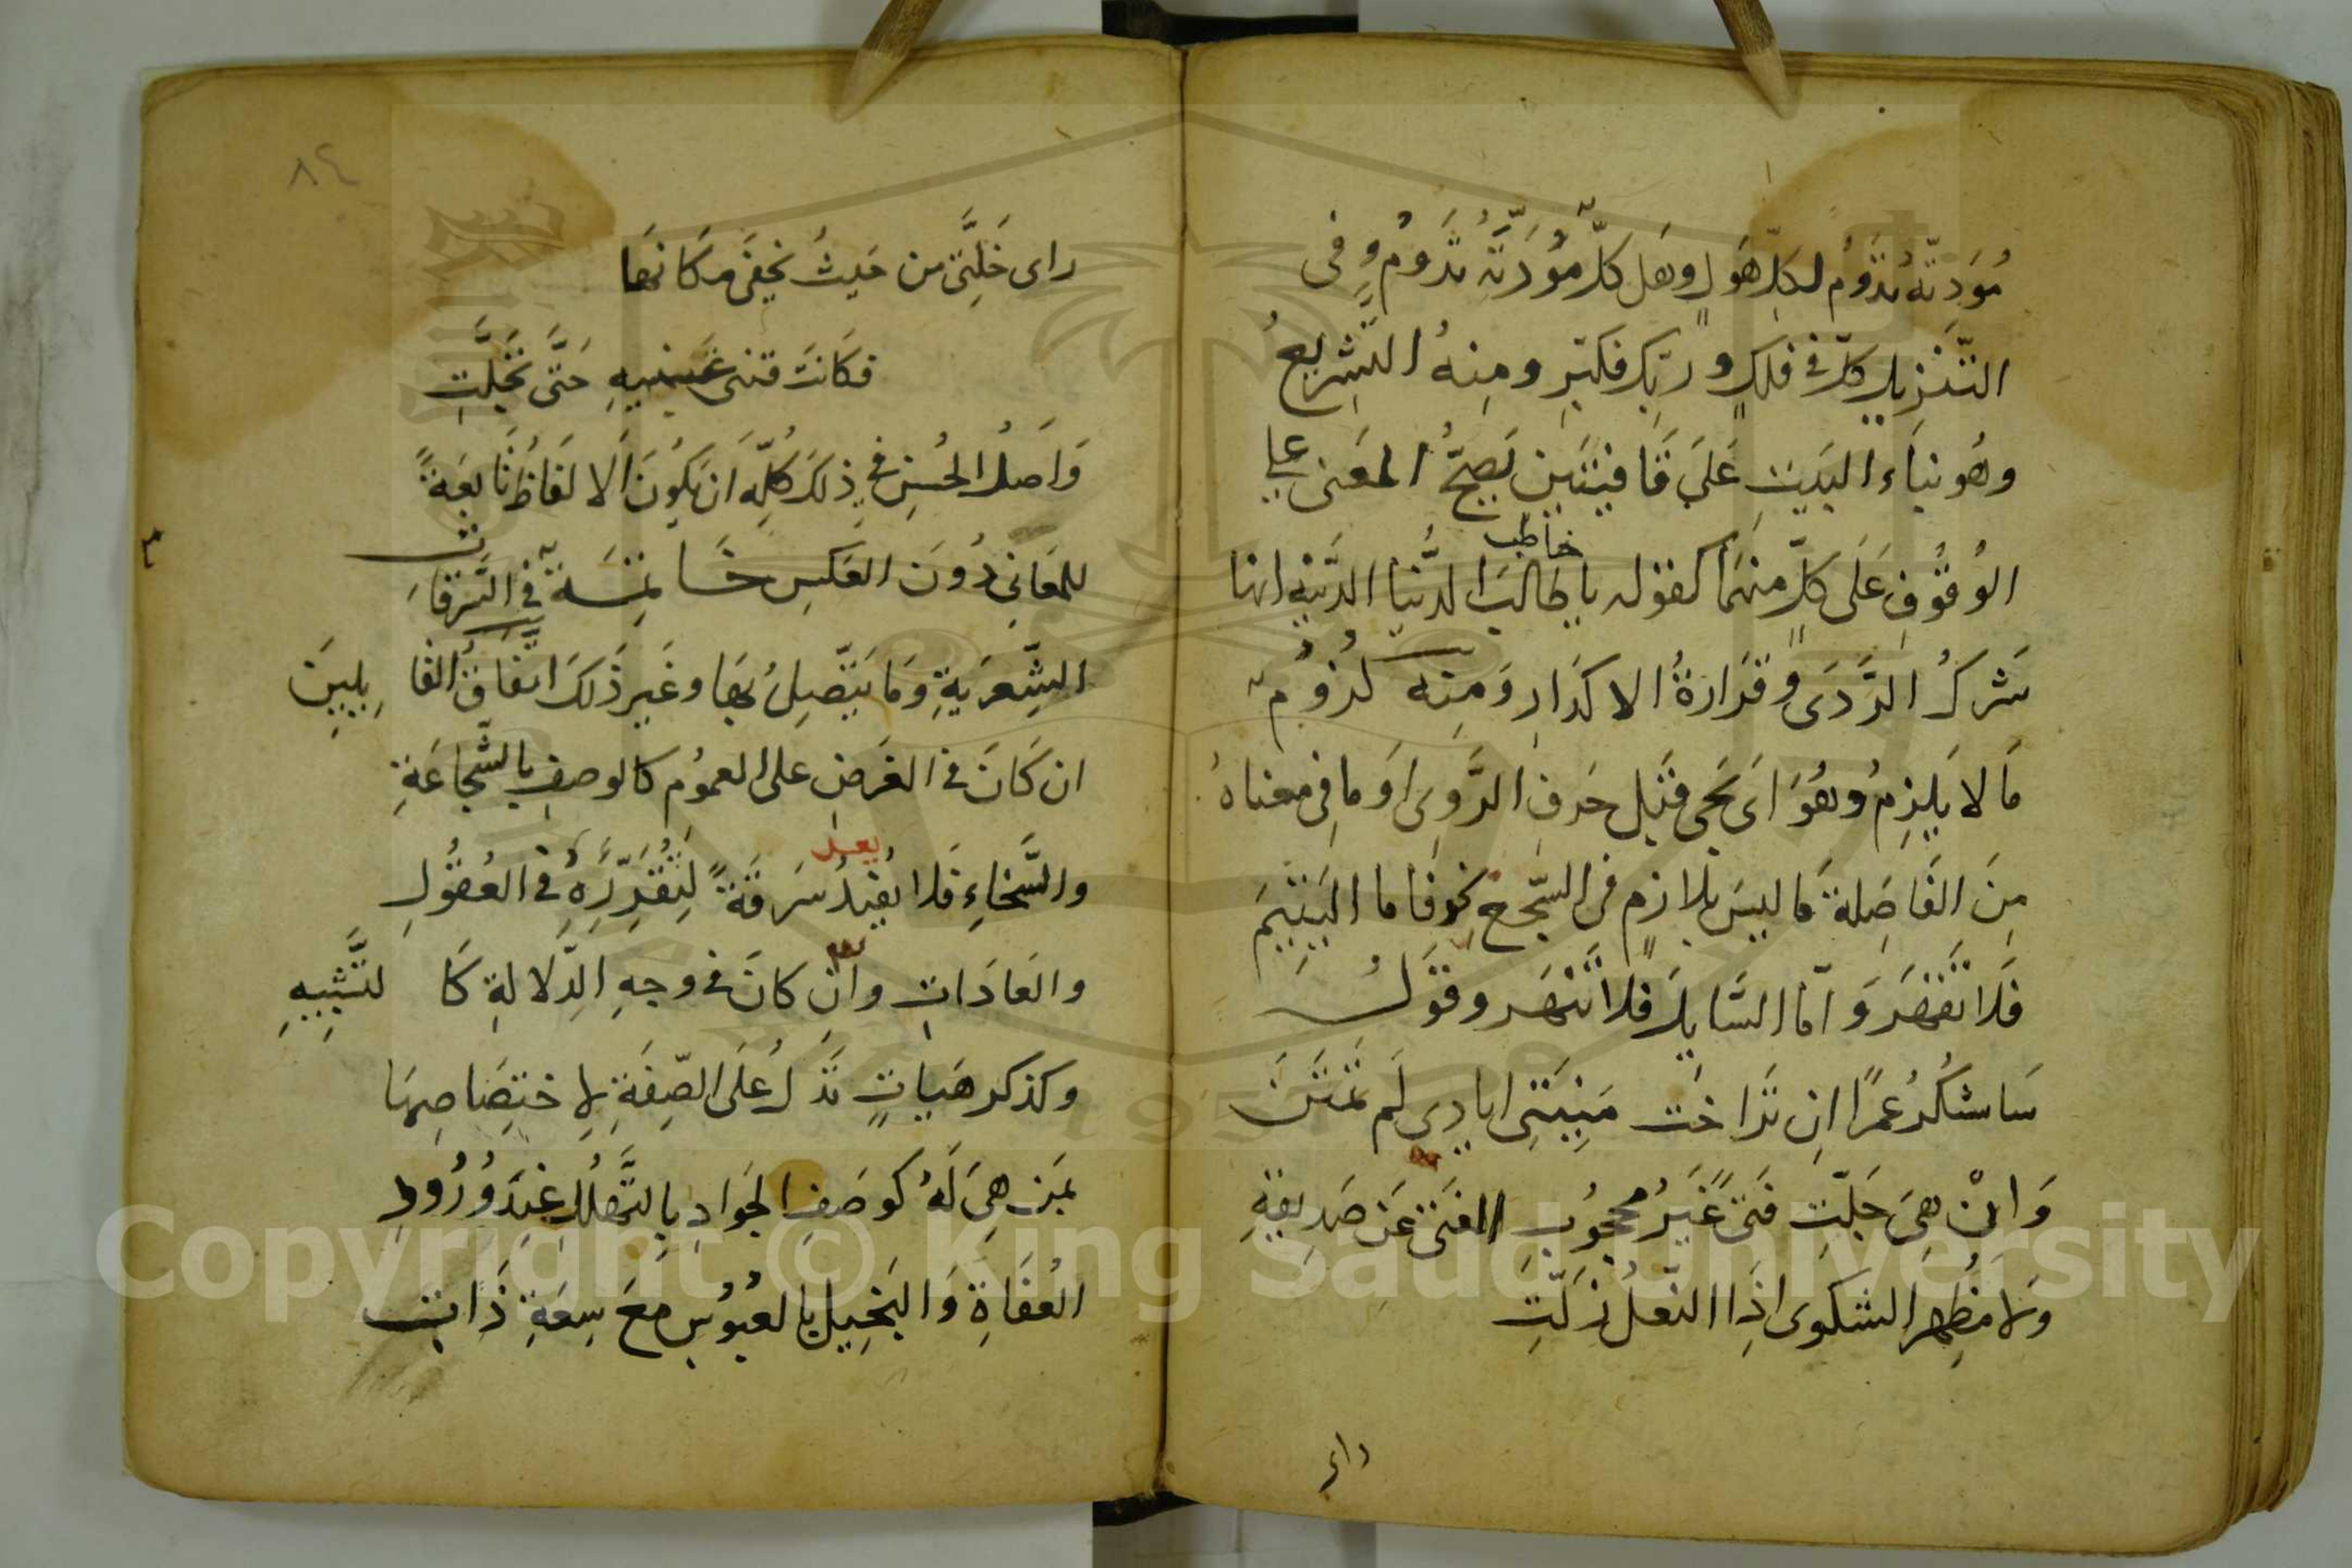 مُوَدَّتُهُ تَدُومُ لكلِّ هَولٍ وهَل كلٌّ مُوَدَّتُهُ تَدُومُ وفى
التَّنْزِيلِ كلٌّ فى فلكٍ وربّك فكبّر ومِنهُ التَّشْرِيعُ
وهُو بناء البَيتِ عَلَى قَافِيَتَين يَصِحُّ المعَنى على
الوُقُوفِ عَلَى كلٍّ منهَما كقوله يا طالبَ الدُّنيا الدَّنيّةِ انها
خاطب
شَرَكُ الرَّدَى وقَرَارةُ الاكدَارِ ومِنه لُزومُ
مَا لا يَلزِمُ وهُوَ اَى يَجى قَبْل حَرفِ الرَّوِى اَو ما فى معناهُ
مِنَ الفَاصِلة مَا ليسَ بلازمٍ فى السّجع نحو فاما اليَتِيمَ
فَلَا تَقْهَر وَامّا السَّايلَ فلا تَنْهَر وقَولُ
سَاشكُرُ عمرًا اِن تَرَاخَت مَنِيَّتِى ايادِى لَم تَمْنُن
وَاِنْ هِىَ جَلَّتِ فَتىً غَيْرُ محجُوبِ الغنَى عَن صَدِيقِهِ
وَلا مُظهِر الشكوى اِذَا النّعلُ زَلَّتِ
راى
٨٤
راى خَلَّتى من حَيثُ يخفَى مكَانهَا
فكَانَت قذى عَينَيهِ حَتَّى تَجَلَّتِ
وَاَصلُ الحُسنِ فى ذلكَ كُلّه ان يَكُونَ الالفَاظُ تَابعَةً
للمَعَانِى دُونَ العَكسِ خَاتمَةٌ فى السَّرقَات
الشِّعرَيةِ وَمَا يَتَّصِلُ بهَا وغَير ذَلكَ اتفَاقُ القايلِينَ
ان كَانَ فى الغَرَضِ على العمُوم كالوصفِ بالشَّجاعَةِ
يعد
والسَّخاءِ فَلا يُفيدُ سَرقَةً لِتَقَرُّرِهِ فى العُقُولِ
والعَادَاتِ وان كانَ فى وجهِ الدَّلالةِ كَالتَّشبيهِ
وكذكر هَياتٍ تَدُلُ عَلَى الصّفَةِ لاِختِصَاصِهَا
بمَن هِىَ لَهُ كوصَفِ الجَوادِ بالتَّهلُّلِ عِندَ وُرُودِ
العُفَاةِ وَالبَخِيلِ بالعبُوُسِ معَ سِعَةِ ذَاتِ
Copyright © King Saud University